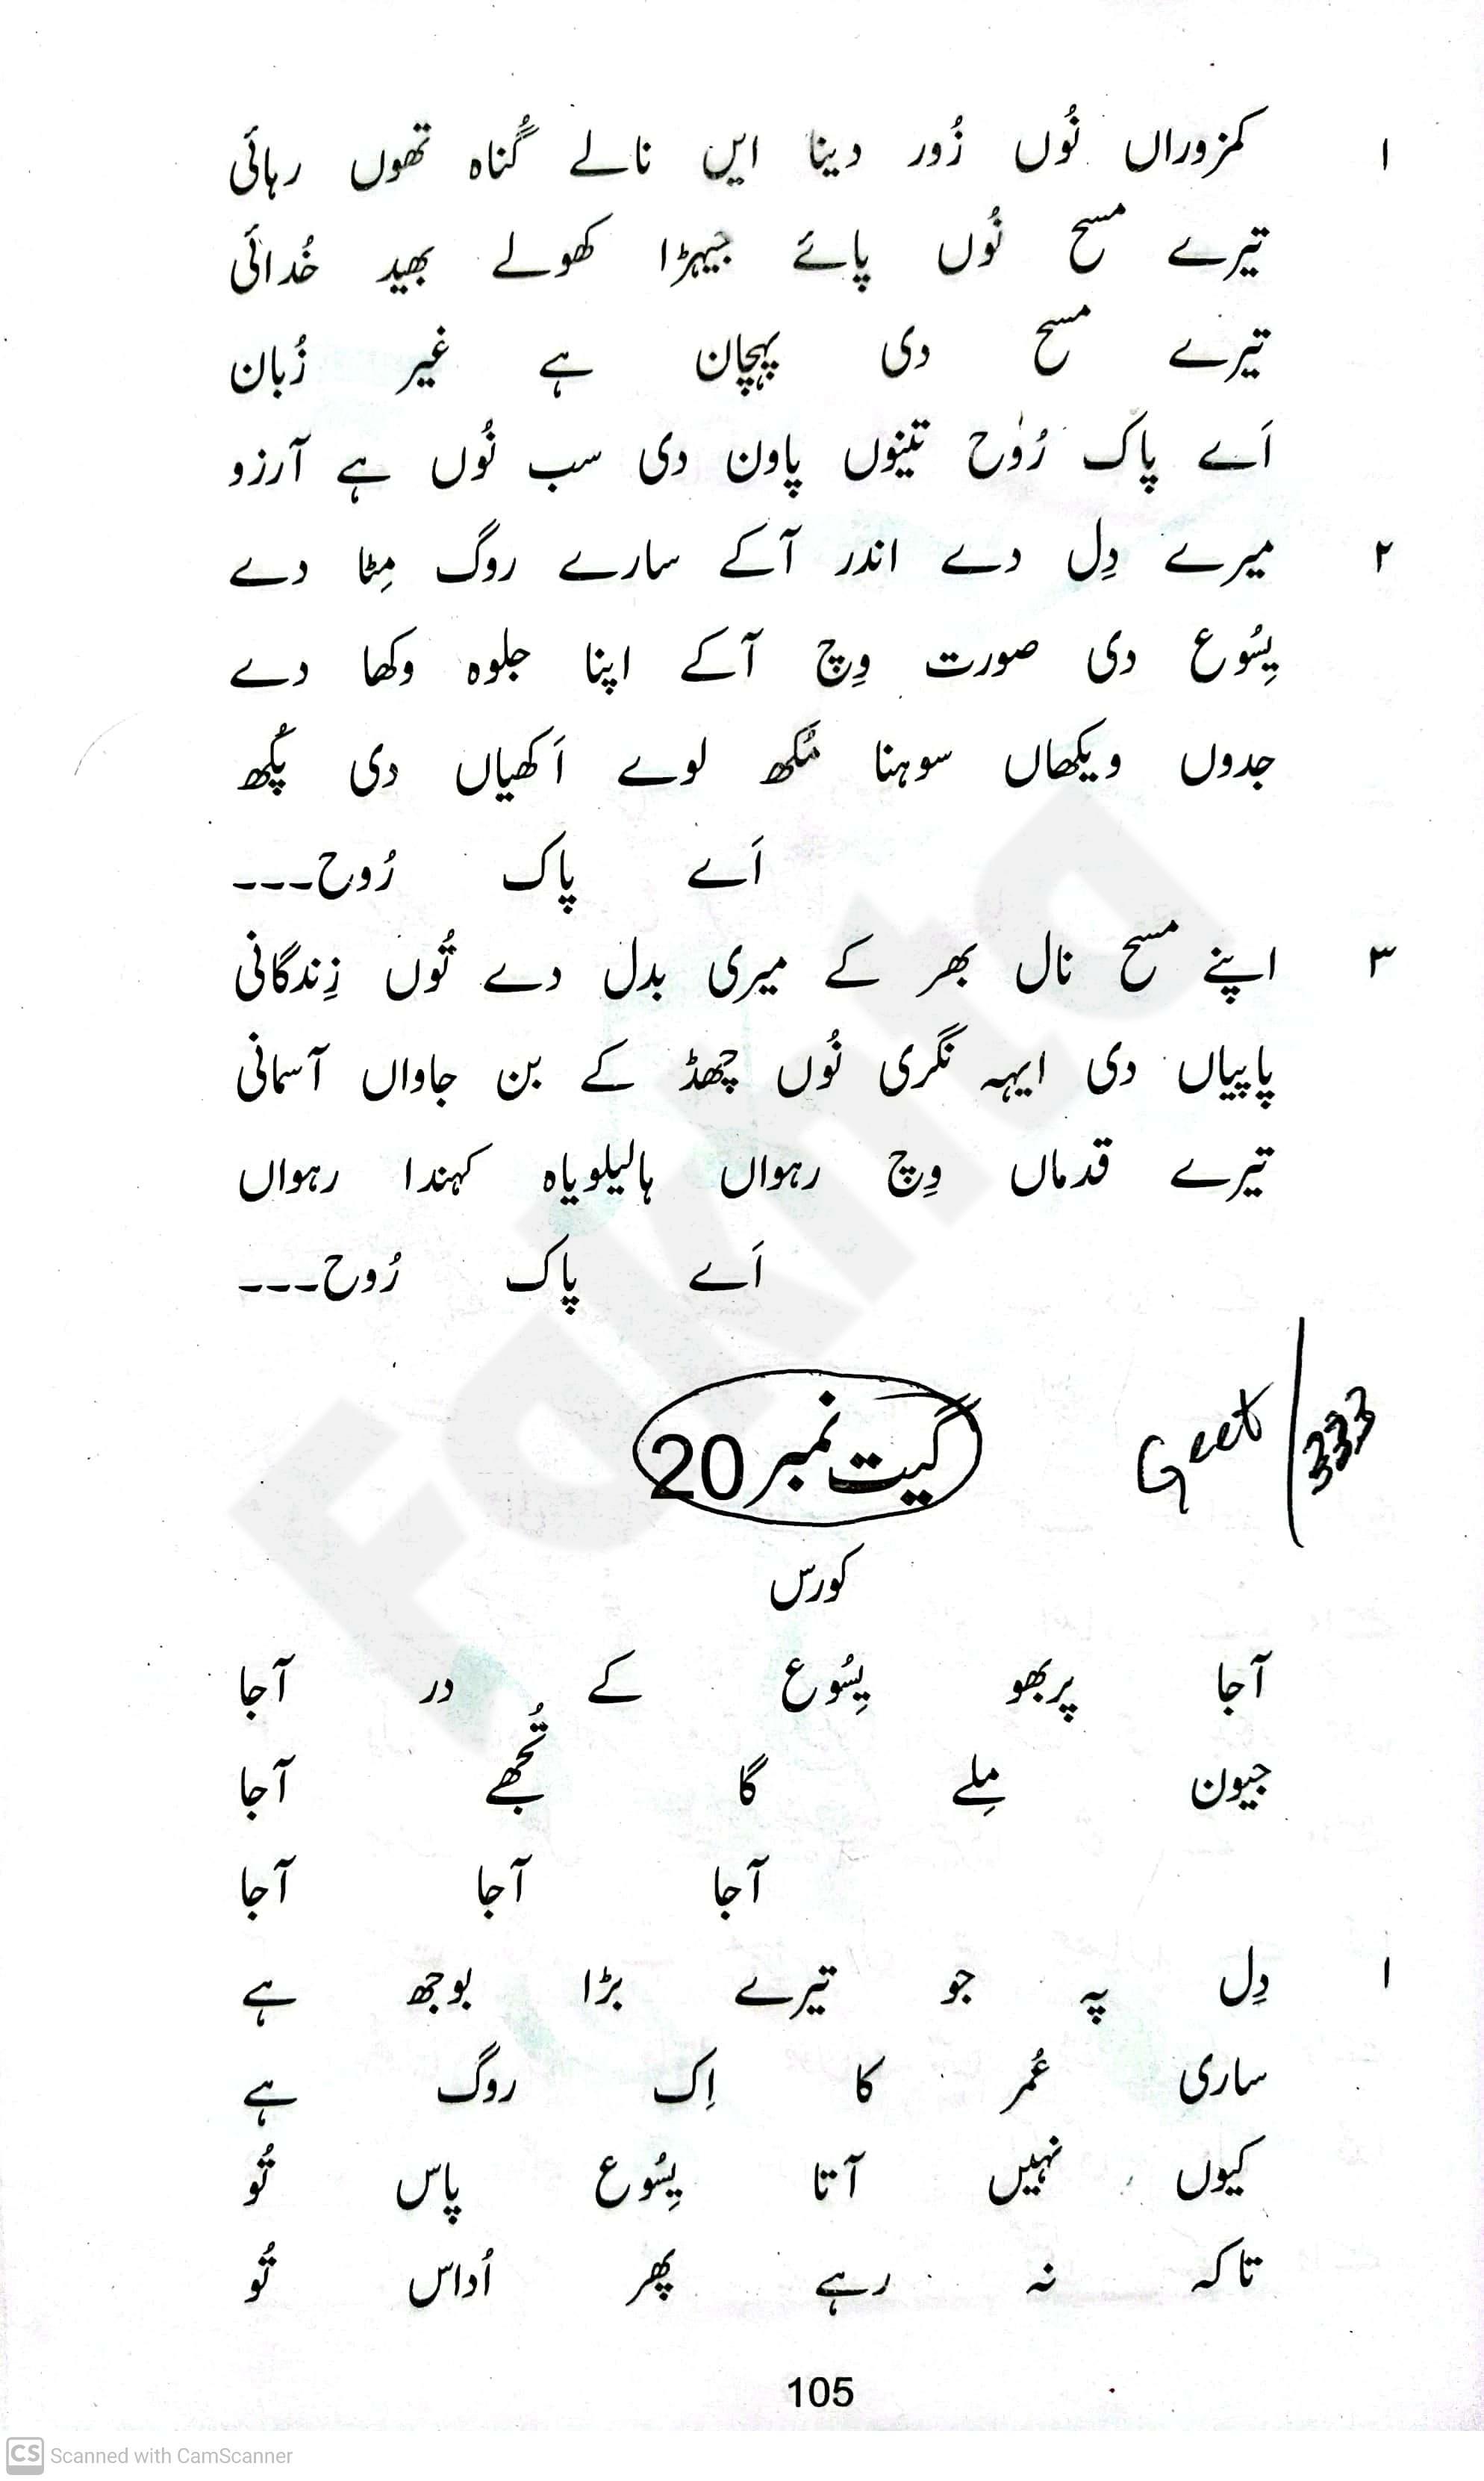 ۱ کمزوراں نُوں زُور دینا ایں نالے گُناہ تھوں رہائی
تیرے مسح نُوں پائے جیہڑا کھولے بھید خُدائی
تیرے مسح دی پہچان ہے غیر زُبان
اَے پاک رُوح تینوں پاون دی سب نُوں ہے آرزو
۲ میرے دِل دے اندر آکے سارے روگ مِٹا دے
یِسُوع دی صورت وِچ آکے اپنا جلوہ وکھا دے
جدوں ویکھاں سوہنا مُکھ لوے اَکھیاں دی پُکھ
اَے پاک رُوح۔۔۔
۳ اپنے مسح نال بھر کے میری بدل دے تُوں زِندگانی
پاپیاں دی ایہہ نگری نُوں چھڈ کے بن جاواں آسمانی
تیرے قدماں وِچ رہواں ہالیلویاہ کہندا رہواں
اَے پاک رُوح۔۔۔
گیت نمبر 20
Geet / 333
کورس
آجا پربھو یِسُوع کے در آجا
جیون مِلے گا تُجھے آجا
آجا آجا آجا
۱ دِل پہ جو تیرے بڑا بوجھ ہے
ساری عُمر کا اِک روگ ہے
کیوں نہیں آتا یِسُوع پاس تُو
تاکہ نہ رہے پھر اُداس تُو
105
Fakhta
CS Scanned with CamScanner